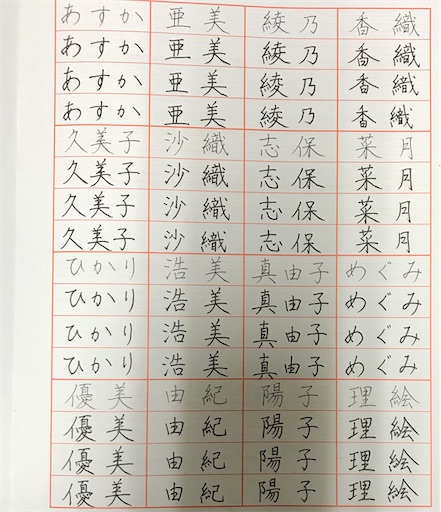 あすか 亜美 綾乃 香織
あすか 亜美 綾乃 香織
あすか 亜美 綾乃 香織
あすか 亜美 綾乃 香織
久美子 沙織 志保 菜月
久美子 沙織 志保 菜月
久美子 沙織 志保 菜月
久美子 沙織 志保 菜月
ひかり 浩美 真由子 めぐみ
ひかり 浩美 真由子 めぐみ
ひかり 浩美 真由子 めぐみ
ひかり 浩美 真由子 めぐみ
優美 由紀 陽子 理絵
優美 由紀 陽子 理絵
優美 由紀 陽子 理絵
優美 由紀 陽子 理絵